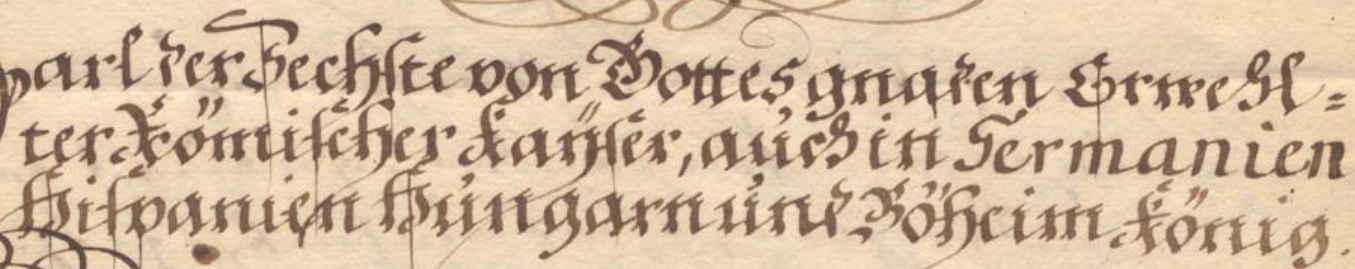 Carl der Sechste von Gottes gnaden Erwehl=
ter Römischer Kaÿser, auch in Germanien
Hispanien Hungarn und Böheim König.